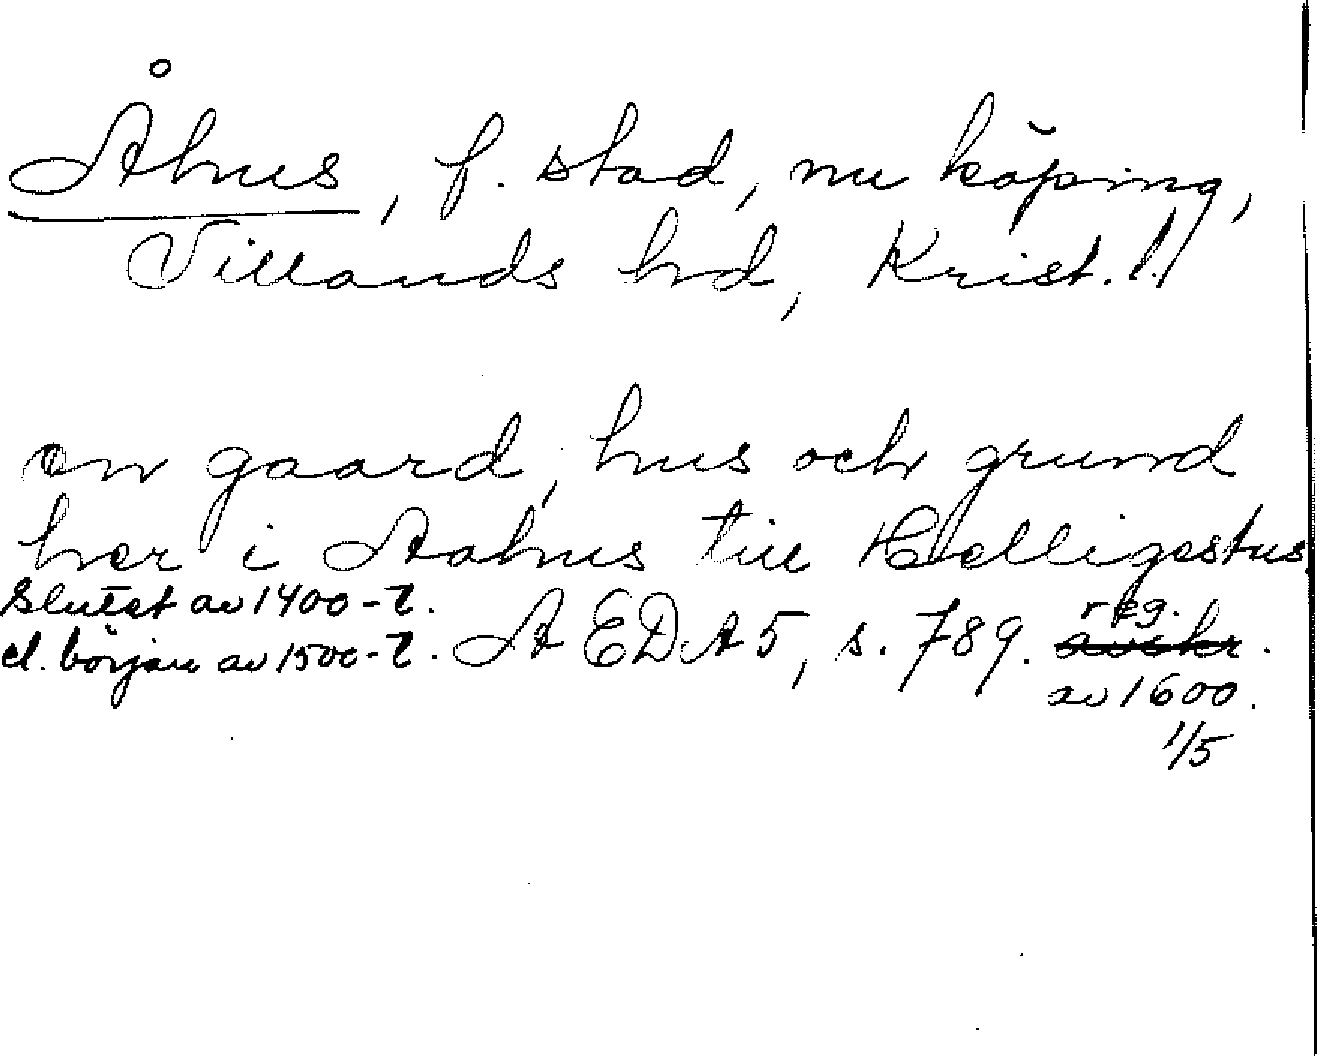 Åhus, f. stad, nu köping,
Villands hd, Krist. l.
en gaard, hus och grund
her i Aahus till Helligestus
Slutet av 1400-t.
el. början av 1500-t. AEDA5, s. 789. reg.
av 1600.
1/5